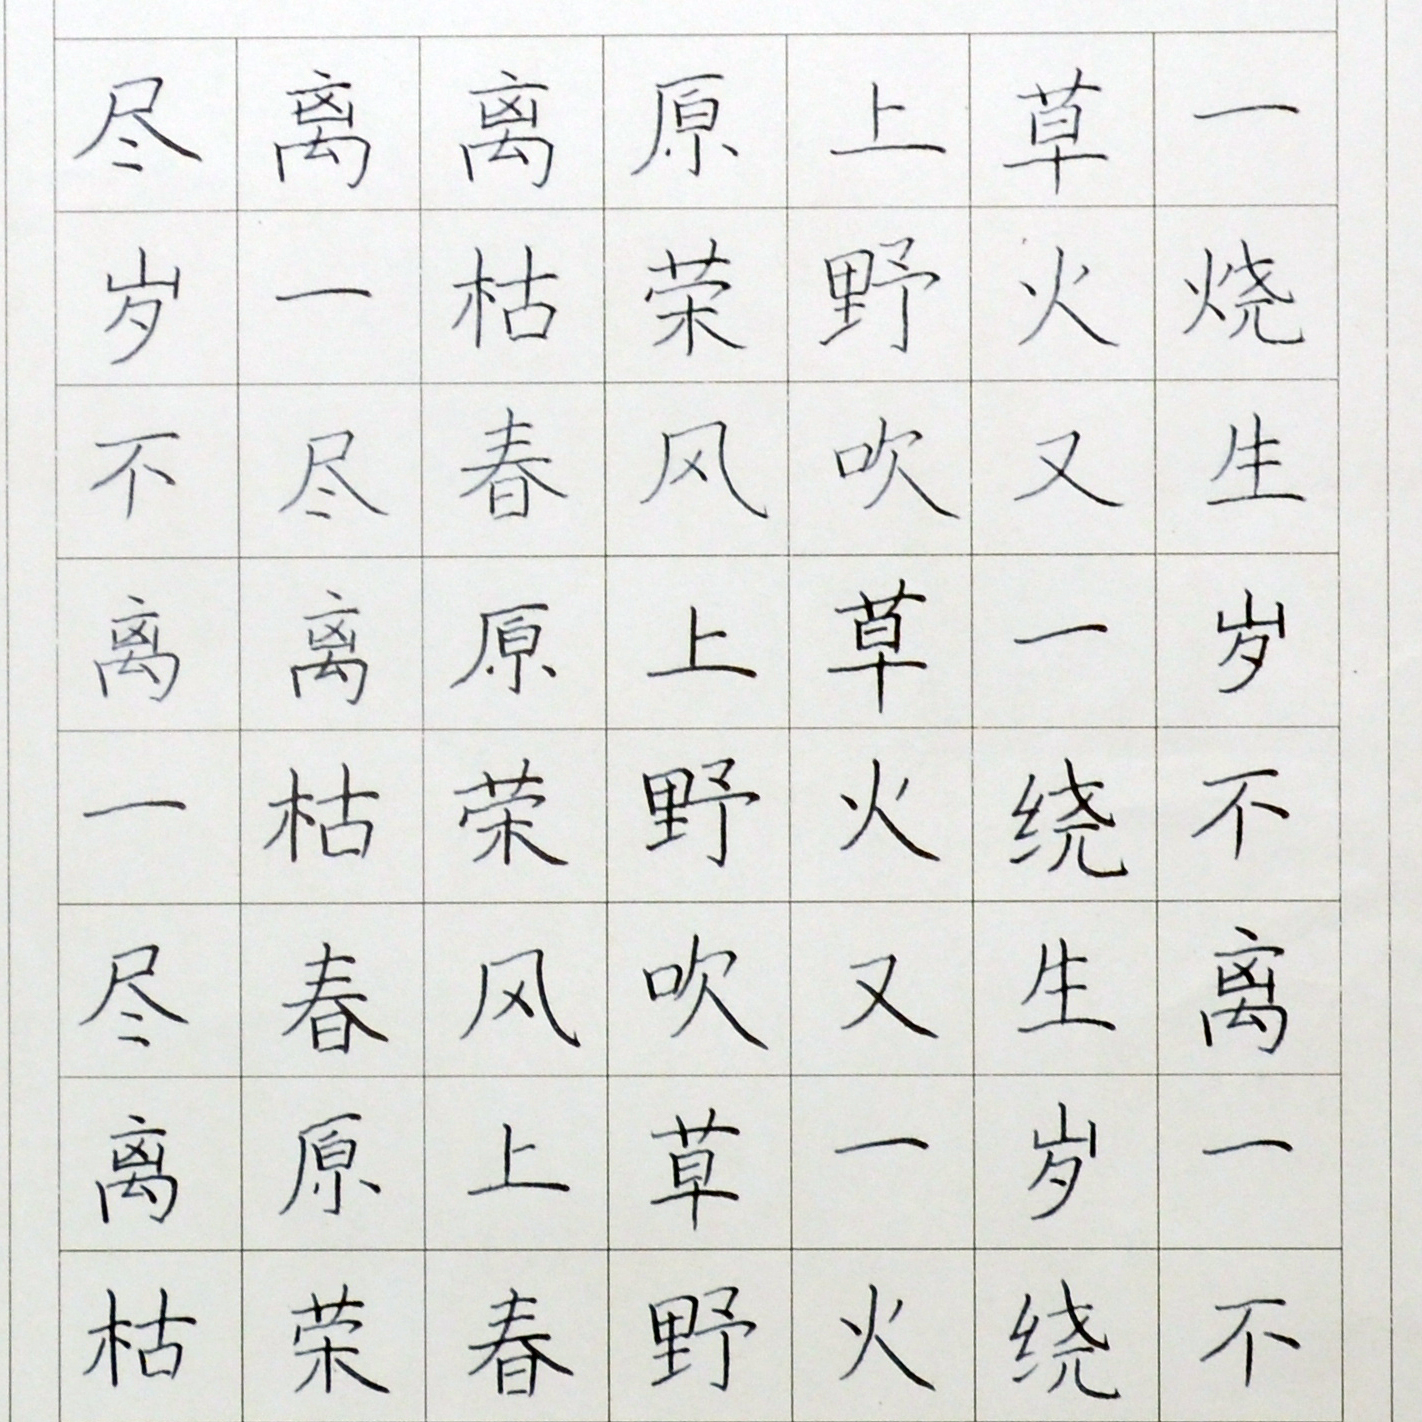 尽离离原上草一
岁一枯荣野火烧
不尽春风吹又生
离离原上草一岁
一枯荣野火绕不
尽春风吹又生离
离原上草一岁一
枯荣春野火绕不